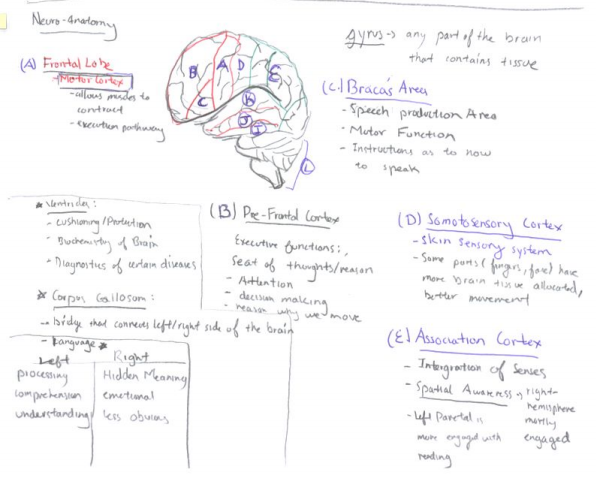 Neuro-Anatomy
(A) Frontal Lobe
Motor Cortex
- allows muscles to
contract
- execution pathway
B
A
D
E
C
K
J
I
L
gyrus -> any part of the brain
that contains tissue
(C.) Braca's Area
- Speech production Area
- Motor Function
- Instructions as to how
to speak
* Ventricles:
- Cushioning/Protection
- Biochemistry of Brain
- Diagnostics of certain diseases
* Corpus Callosom:
- bridge that connects left/right side of the brain
- Language *
Left Right
processing Hidden Meaning
comprehension emotional
understanding less obvious
(B) Pre-Frontal Cortex
Executive functions:,
Seat of thoughts/reason
- Attention
- decision making
- reason why we move
(D) Somotosensory Cortex
- Skin sensory system
- Some parts (fingers, face) have
more brain tissue allocated,
better movement
(E) Association Cortex
- Intergration of Senses
- Spatial Awareness, right-
hemisphere
mostly
engaged
- Left Parietal is
more engaged with
reading